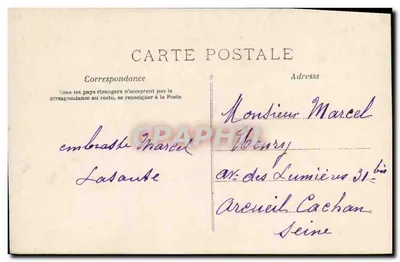 CARTE POSTALE
Correspondance
Tous les pays étrangers n'acceptent pas la
correspondance au recto, se renseigner à la Poste
Adresse
embrasse Marcel
Lasante
Monsieur Marcel
Henry
av. des Lumières 31 bis
Arcueil Cachan
Seine
CPAPHIL